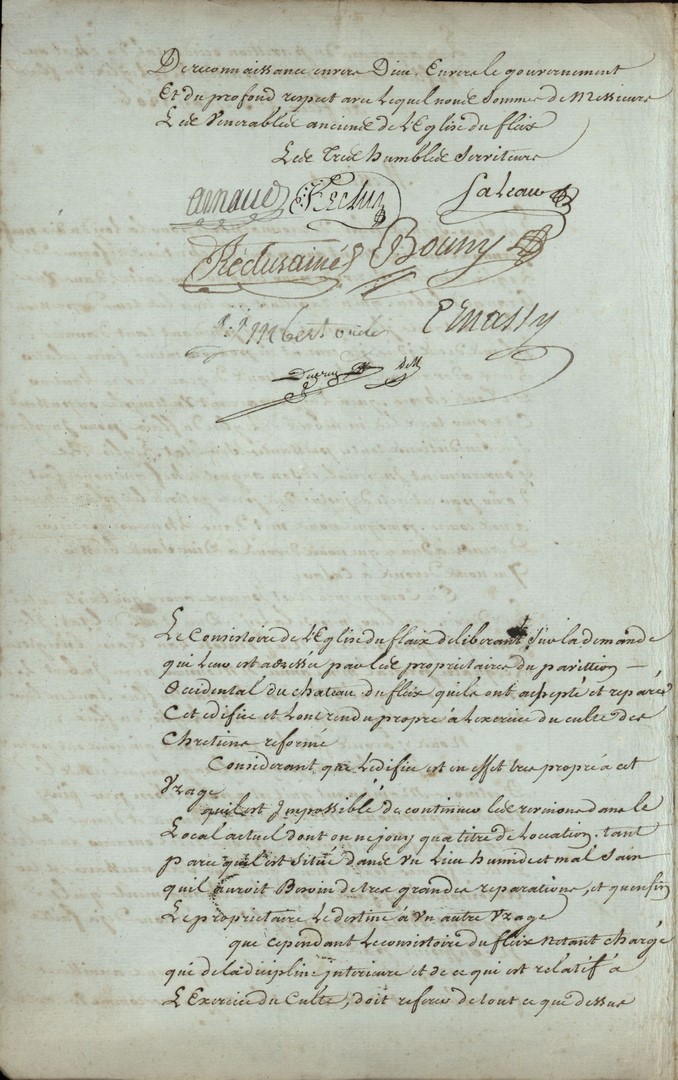 De reconnaissance envers Dieu, Envers le gouvernement
Et du profond respect avec Lequel nous Sommes de Messieurs
Les Venerables anciens de L'Eglise du fleix
Les Tres humbles Serviteurs
arnaud Reclus Saleau
Réclus ainé Bouny
Imbert Pmassy
Le Consistoire de L'Eglise du flaix deliberant Sur la demande
qui Leur est adressée par Les propriétaires du pavillion
Occidental du chateau du fleix quils ont achepté et reparé
Cet edifice et Lont rendu propre à Lexercice du culte des
Chretiens reformé
Considerant que Ledifice est en effet tres propre à cet
Uzage
quil est Impossible de continuer Les reunions dans le
Local actuel dont on ne jouy qua titre de Location. tant
parce quil est Situé dans Un Lieu humide et mal Sain
quil auroit Besoin de tres grandes reparations, et quenfin
Le propriétaire Le destine à Un autre Uzage
que cependant Le consistoire du fleix Netant chargé
que de la dicipline jnterieure et de ce qui est relatif à
L'Exercice du Culte, doit referer de tout ce que dessus